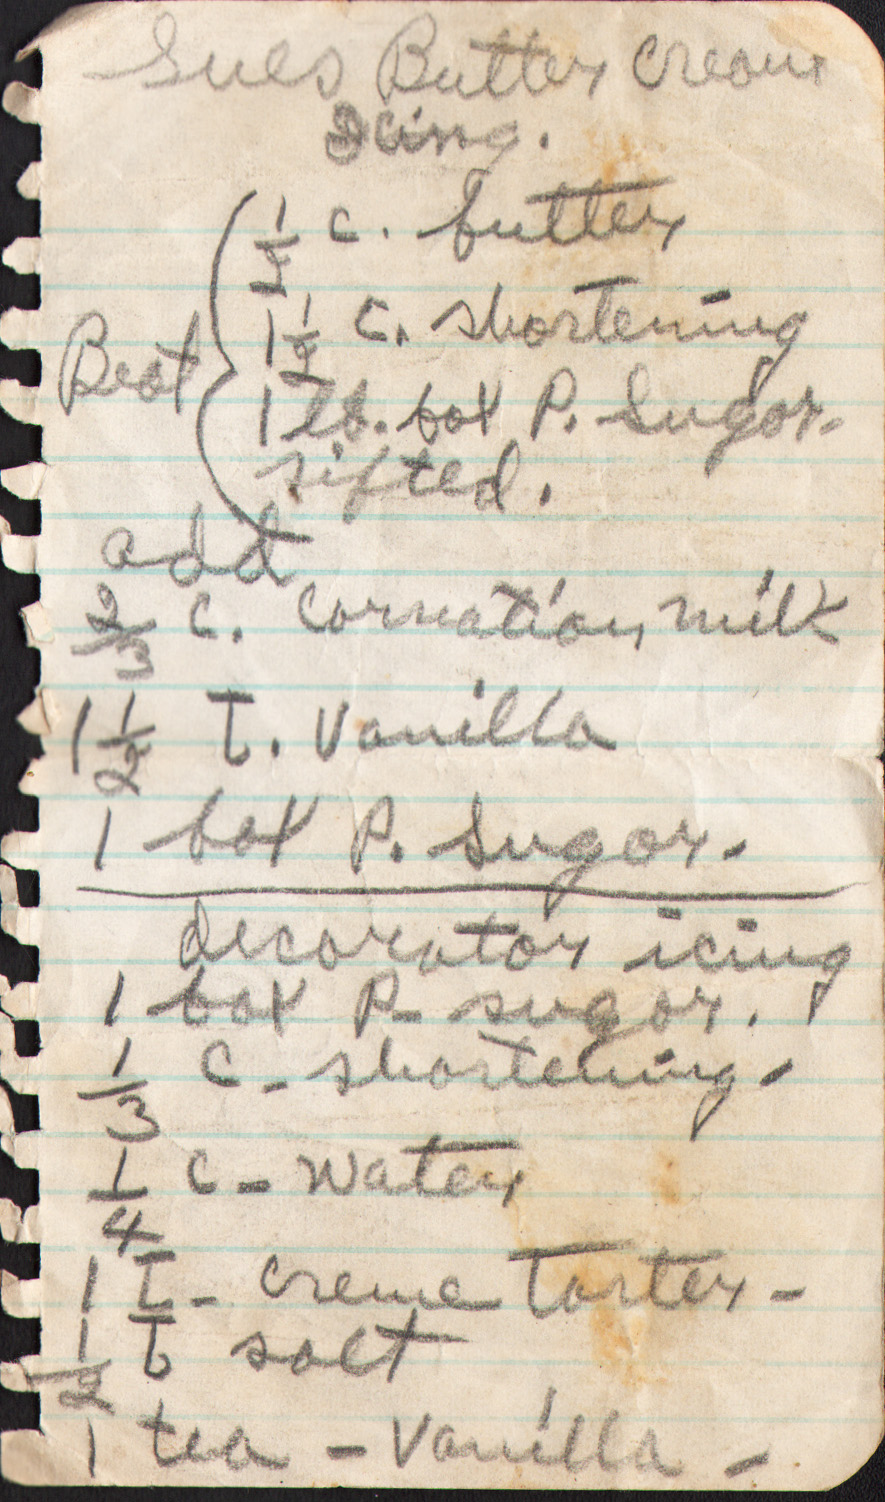 Sues Butter Cream
Icing.
1/2 c. butter
1 1/2 c. shortening
Beat
1 lb. box P. Sugar.
sifted.
add
2/3 c. Carnation milk
1 1/2 T. Vanilla
1 box P. Sugar.
decorator icing
1 box P. sugar.
1/3 c - shortening -
1/4 c - water
1 T - creme Tarter -
1/2 T salt
1 tea - Vanilla -